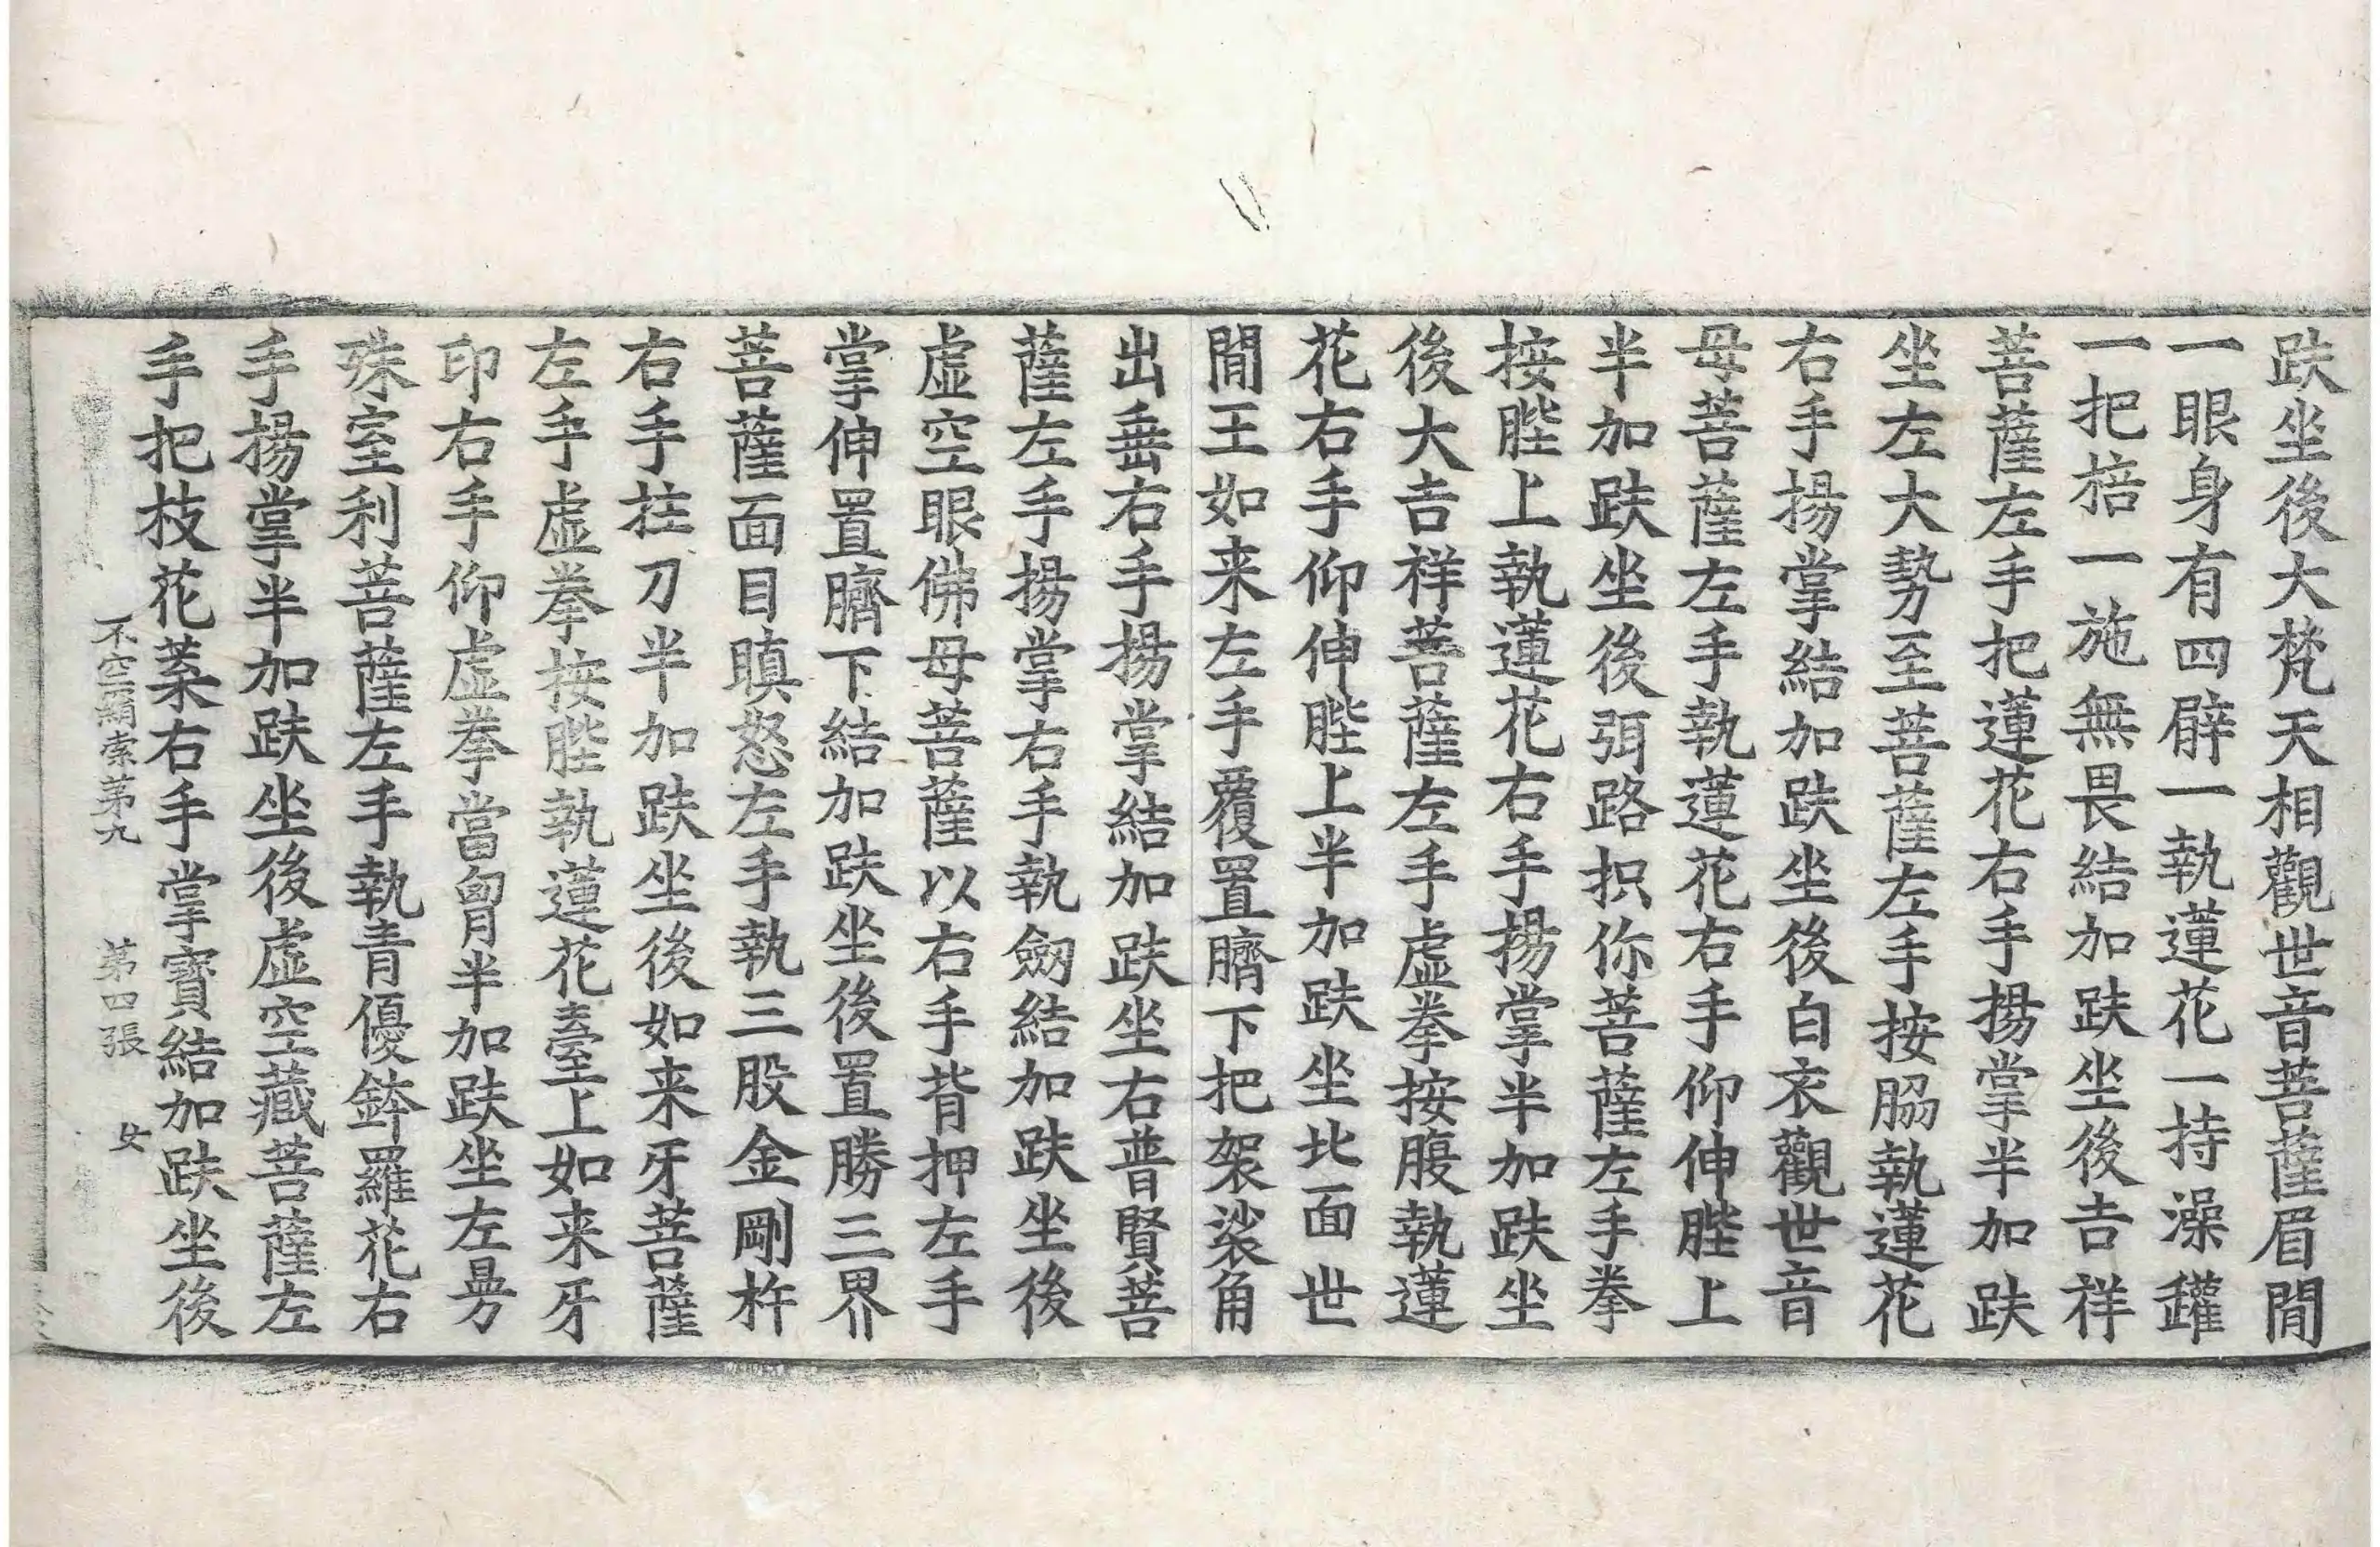 趺坐後大梵天相觀世音菩薩眉間
一眼身有四臂一執蓮花一持澡鑵
一把棓一施無畏結加趺坐後吉祥
菩薩左手把蓮花右手揚掌半加趺
坐左大勢至菩薩左手按脇執蓮花
右手揚掌結加趺坐後白衣觀世音
母菩薩左手執蓮花右手仰伸髀上
半加趺坐後弭路抧你菩薩左手拳
按髀上執蓮花右手揚掌半加趺坐
後大吉祥菩薩左手虛拳按腹執蓮
花右手仰伸髀上半加趺坐北面世
間王如来左手覆置臍下把袈裟角
出垂右手揚掌結加趺坐右普賢菩
薩左手揚掌右手執劒結加趺坐後
虛空眼佛母菩薩以右手背押左手
掌伸置臍下結加趺坐後置勝三界
菩薩面目瞋怒左手執三股金剛杵
右手拄刀半加趺坐後如来牙菩薩
左手虛拳按髀執蓮花臺上如来牙
印右手仰虛拳當胷半加趺坐左曼
殊室利菩薩左手執青優鉢羅花右
手揚掌半加趺坐後虛空藏菩薩左
手把枝花菓右手掌寶結加趺坐後
不空羂索第九 第四張 女